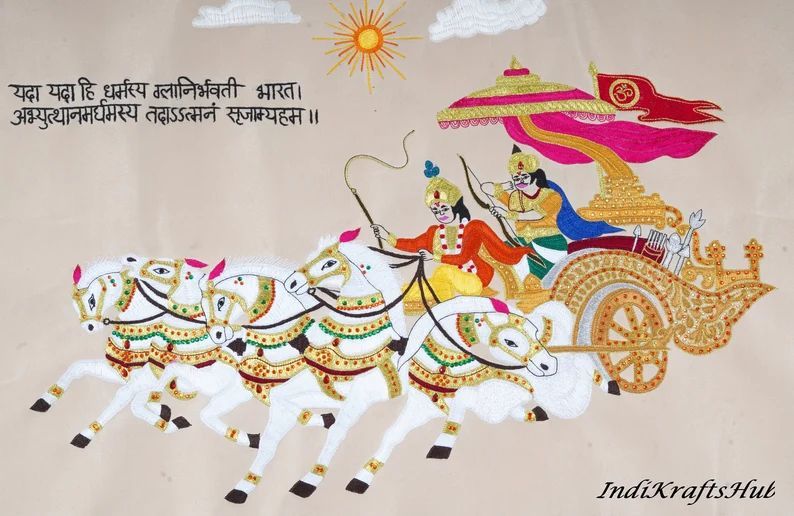 यदा यदा हि धर्मस्य ग्लानिर्भवती भारत।
अभ्युत्थानमर्धमस्य तदाऽऽत्मनं सृजाम्यहम॥
ॐ
IndiKraftsHub